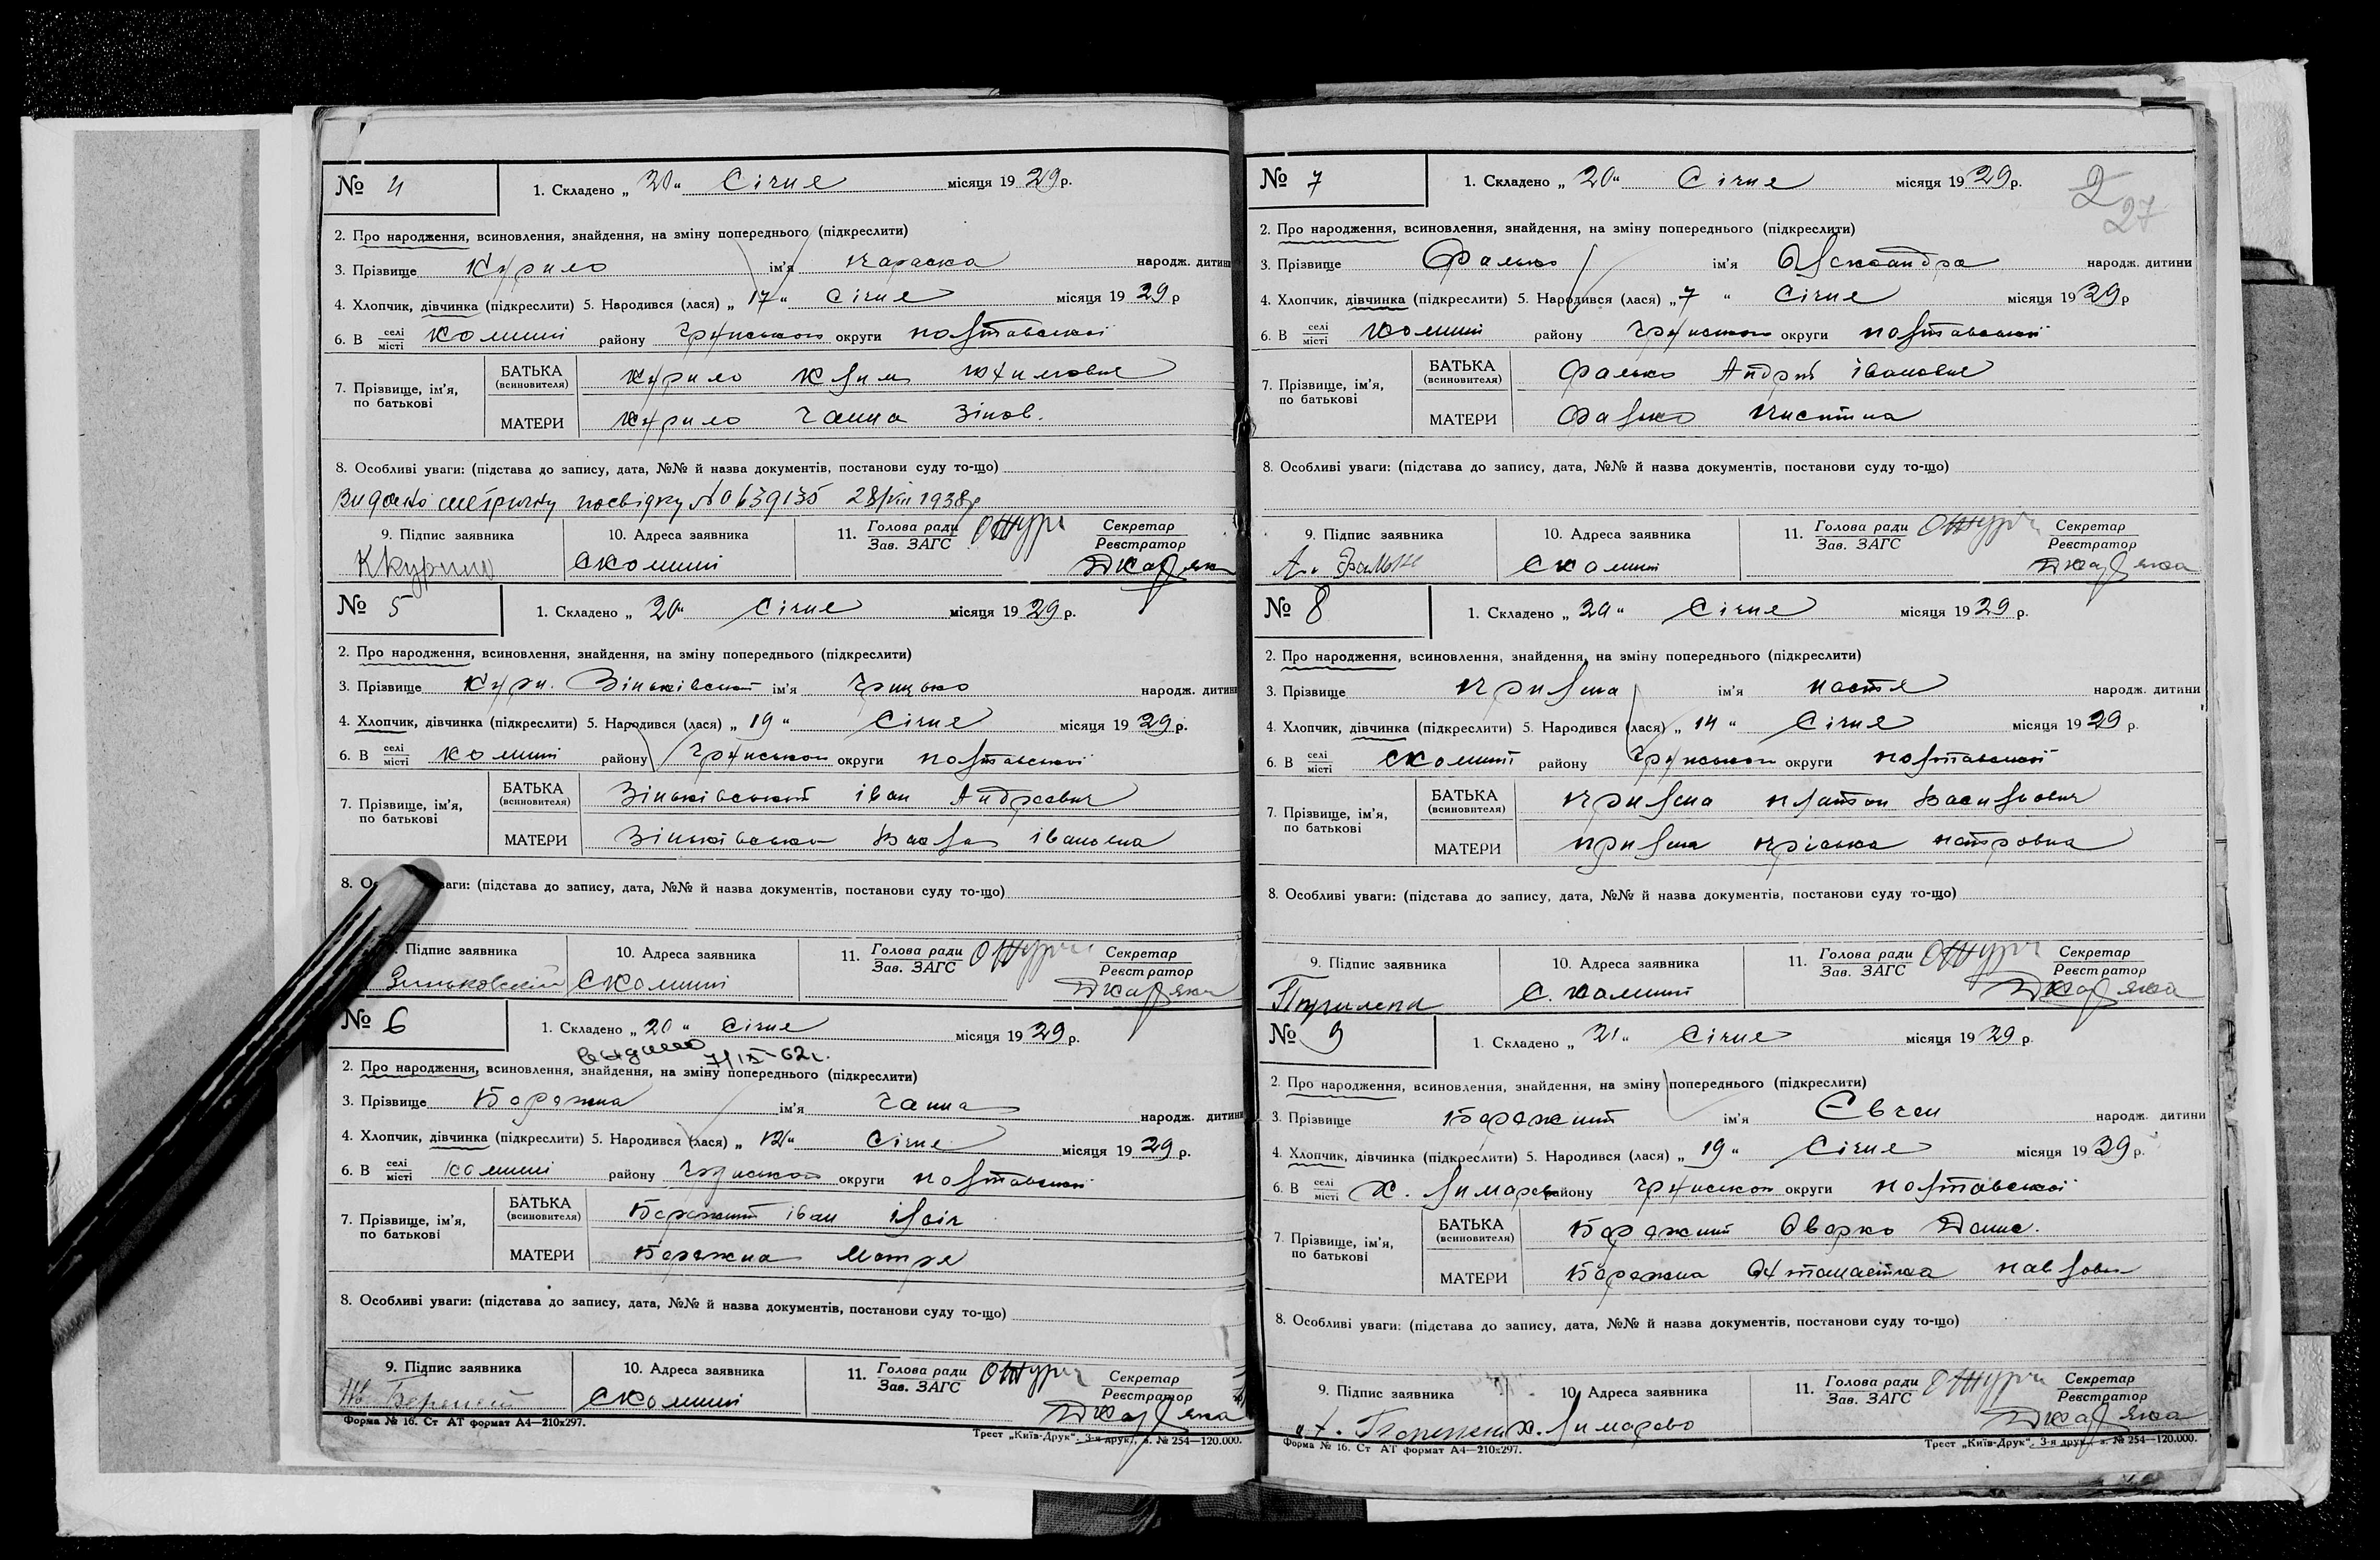 № 4
1. Складено „ 20 “ Січня місяця 1929 р.
2. Про народження, всиновлення, знайдення, на зміну попереднього (підкреслити)
3. Прізвище Курило ім'я Параска народж. дитини
4. Хлопчик, дівчинка (підкреслити) 5. Народився (лася) „ 17 “ Січня місяця 1929 р
6. В селі місті Комиші району Грунського округи Полтавської
7. Прізвище, ім'я, по батькові
БАТЬКА (всиновителя) Курило Клим
МАТЕРИ Курило Ганна Зінов.
8. Особливі уваги: (підстава до запису, дата, №№ й назва документів, постанови суду то-що)
Видано метричну посвідку №0639135 28/VIII 1938р
9. Підпис заявника 10. Адреса заявника 11. Голова ради Зав. ЗАГС Секретар Реєстратор
К Курило С Комиші
№ 5
1. Складено „ 20 “ Січня місяця 1929 р.
2. Про народження, всиновлення, знайдення, на зміну попереднього (підкреслити)
3. Прізвище Зіньківський ім'я Грицько народж. дитини
4. Хлопчик, дівчинка (підкреслити) 5. Народився (лася) „ 19 “ Січня місяця 1929 р.
6. В селі місті Комиші району Грунського округи Полтавської
7. Прізвище, ім'я, по батькові
БАТЬКА (всиновителя) Зіньківський Іван Андреєвич
МАТЕРИ Зіньківська Івановна
8. уваги: (підстава до запису, дата, №№ й назва документів, постанови суду то-що)
Підпис заявника 10. Адреса заявника 11. Голова ради Зав. ЗАГС Секретар Реєстратор
Зиньковский С Комиші
№ 6
1. Складено „ 20 “ Січня місяця 1929 р.
видано 7/IX-62г.
2. Про народження, всиновлення, знайдення, на зміну попереднього (підкреслити)
3. Прізвище Бережна ім'я Ганна народж. дитини
4. Хлопчик, дівчинка (підкреслити) 5. Народився (лася) „ 12 “ Січня місяця 1929 р.
6. В селі місті Комиші району Грунського округи Полтавської
7. Прізвище, ім'я, по батькові
БАТЬКА (всиновителя) Бережний Іван
МАТЕРИ Бережна Мотря
8. Особливі уваги: (підстава до запису, дата, №№ й назва документів, постанови суду то-що)
9. Підпис заявника 10. Адреса заявника 11. Голова ради Зав. ЗАГС Секретар Реєстратор
С Комиші
Форма № 16. Ст АТ формат А4—210х297.
Трест „Київ-Друк“, 3-я друк., з. № 254—120.000.
2
27
№ 7
1. Складено „ 20 “ Січня місяця 1929 р.
2. Про народження, всиновлення, знайдення, на зміну попереднього (підкреслити)
3. Прізвище Фалько ім'я народж. дитини
4. Хлопчик, дівчинка (підкреслити) 5. Народився (лася) „ 7 “ Січня місяця 1929 р
6. В селі місті Комиші району Грунського округи Полтавської
7. Прізвище, ім'я, по батькові
БАТЬКА (всиновителя) Фалько Андрій Іванович
МАТЕРИ Фалько
8. Особливі уваги: (підстава до запису, дата, №№ й назва документів, постанови суду то-що)
9. Підпис заявника 10. Адреса заявника 11. Голова ради Зав. ЗАГС Секретар Реєстратор
С Комиші
№ 8
1. Складено „ 20 “ Січня місяця 1929 р.
2. Про народження, всиновлення, знайдення, на зміну попереднього (підкреслити)
3. Прізвище ім'я Настя народж. дитини
4. Хлопчик, дівчинка (підкреслити) 5. Народився (лася) „ 14 “ Січня місяця 1929 р.
6. В селі місті С Комиші району Грунського округи Полтавської
7. Прізвище, ім'я, по батькові
БАТЬКА (всиновителя) Платон Васильович
МАТЕРИ Пріська Петровна
8. Особливі уваги: (підстава до запису, дата, №№ й назва документів, постанови суду то-що)
9. Підпис заявника 10. Адреса заявника 11. Голова ради Зав. ЗАГС Секретар Реєстратор
С. Комиші
№ 9
1. Складено „ 21 “ Січня місяця 1929 р.
2. Про народження, всиновлення, знайдення, на зміну попереднього (підкреслити)
3. Прізвище Бережний ім'я Євген народж. дитини
4. Хлопчик, дівчинка (підкреслити) 5. Народився (лася) „ 19 “ Січня місяця 1929 р.
6. В селі місті Х. Лимарево району Грунського округи Полтавської
7. Прізвище, ім'я, по батькові
БАТЬКА (всиновителя) Бережний Оверко Дани.
МАТЕРИ Бережна Павлов
8. Особливі уваги: (підстава до запису, дата, №№ й назва документів, постанови суду то-що)
9. Підпис заявника 10. Адреса заявника 11. Голова ради Зав. ЗАГС Секретар Реєстратор
Х. Лимарево
Форма № 16. Ст АТ формат А4—210х297.
Трест „Київ-Друк“, 3-я друк., з. № 254—120.000.